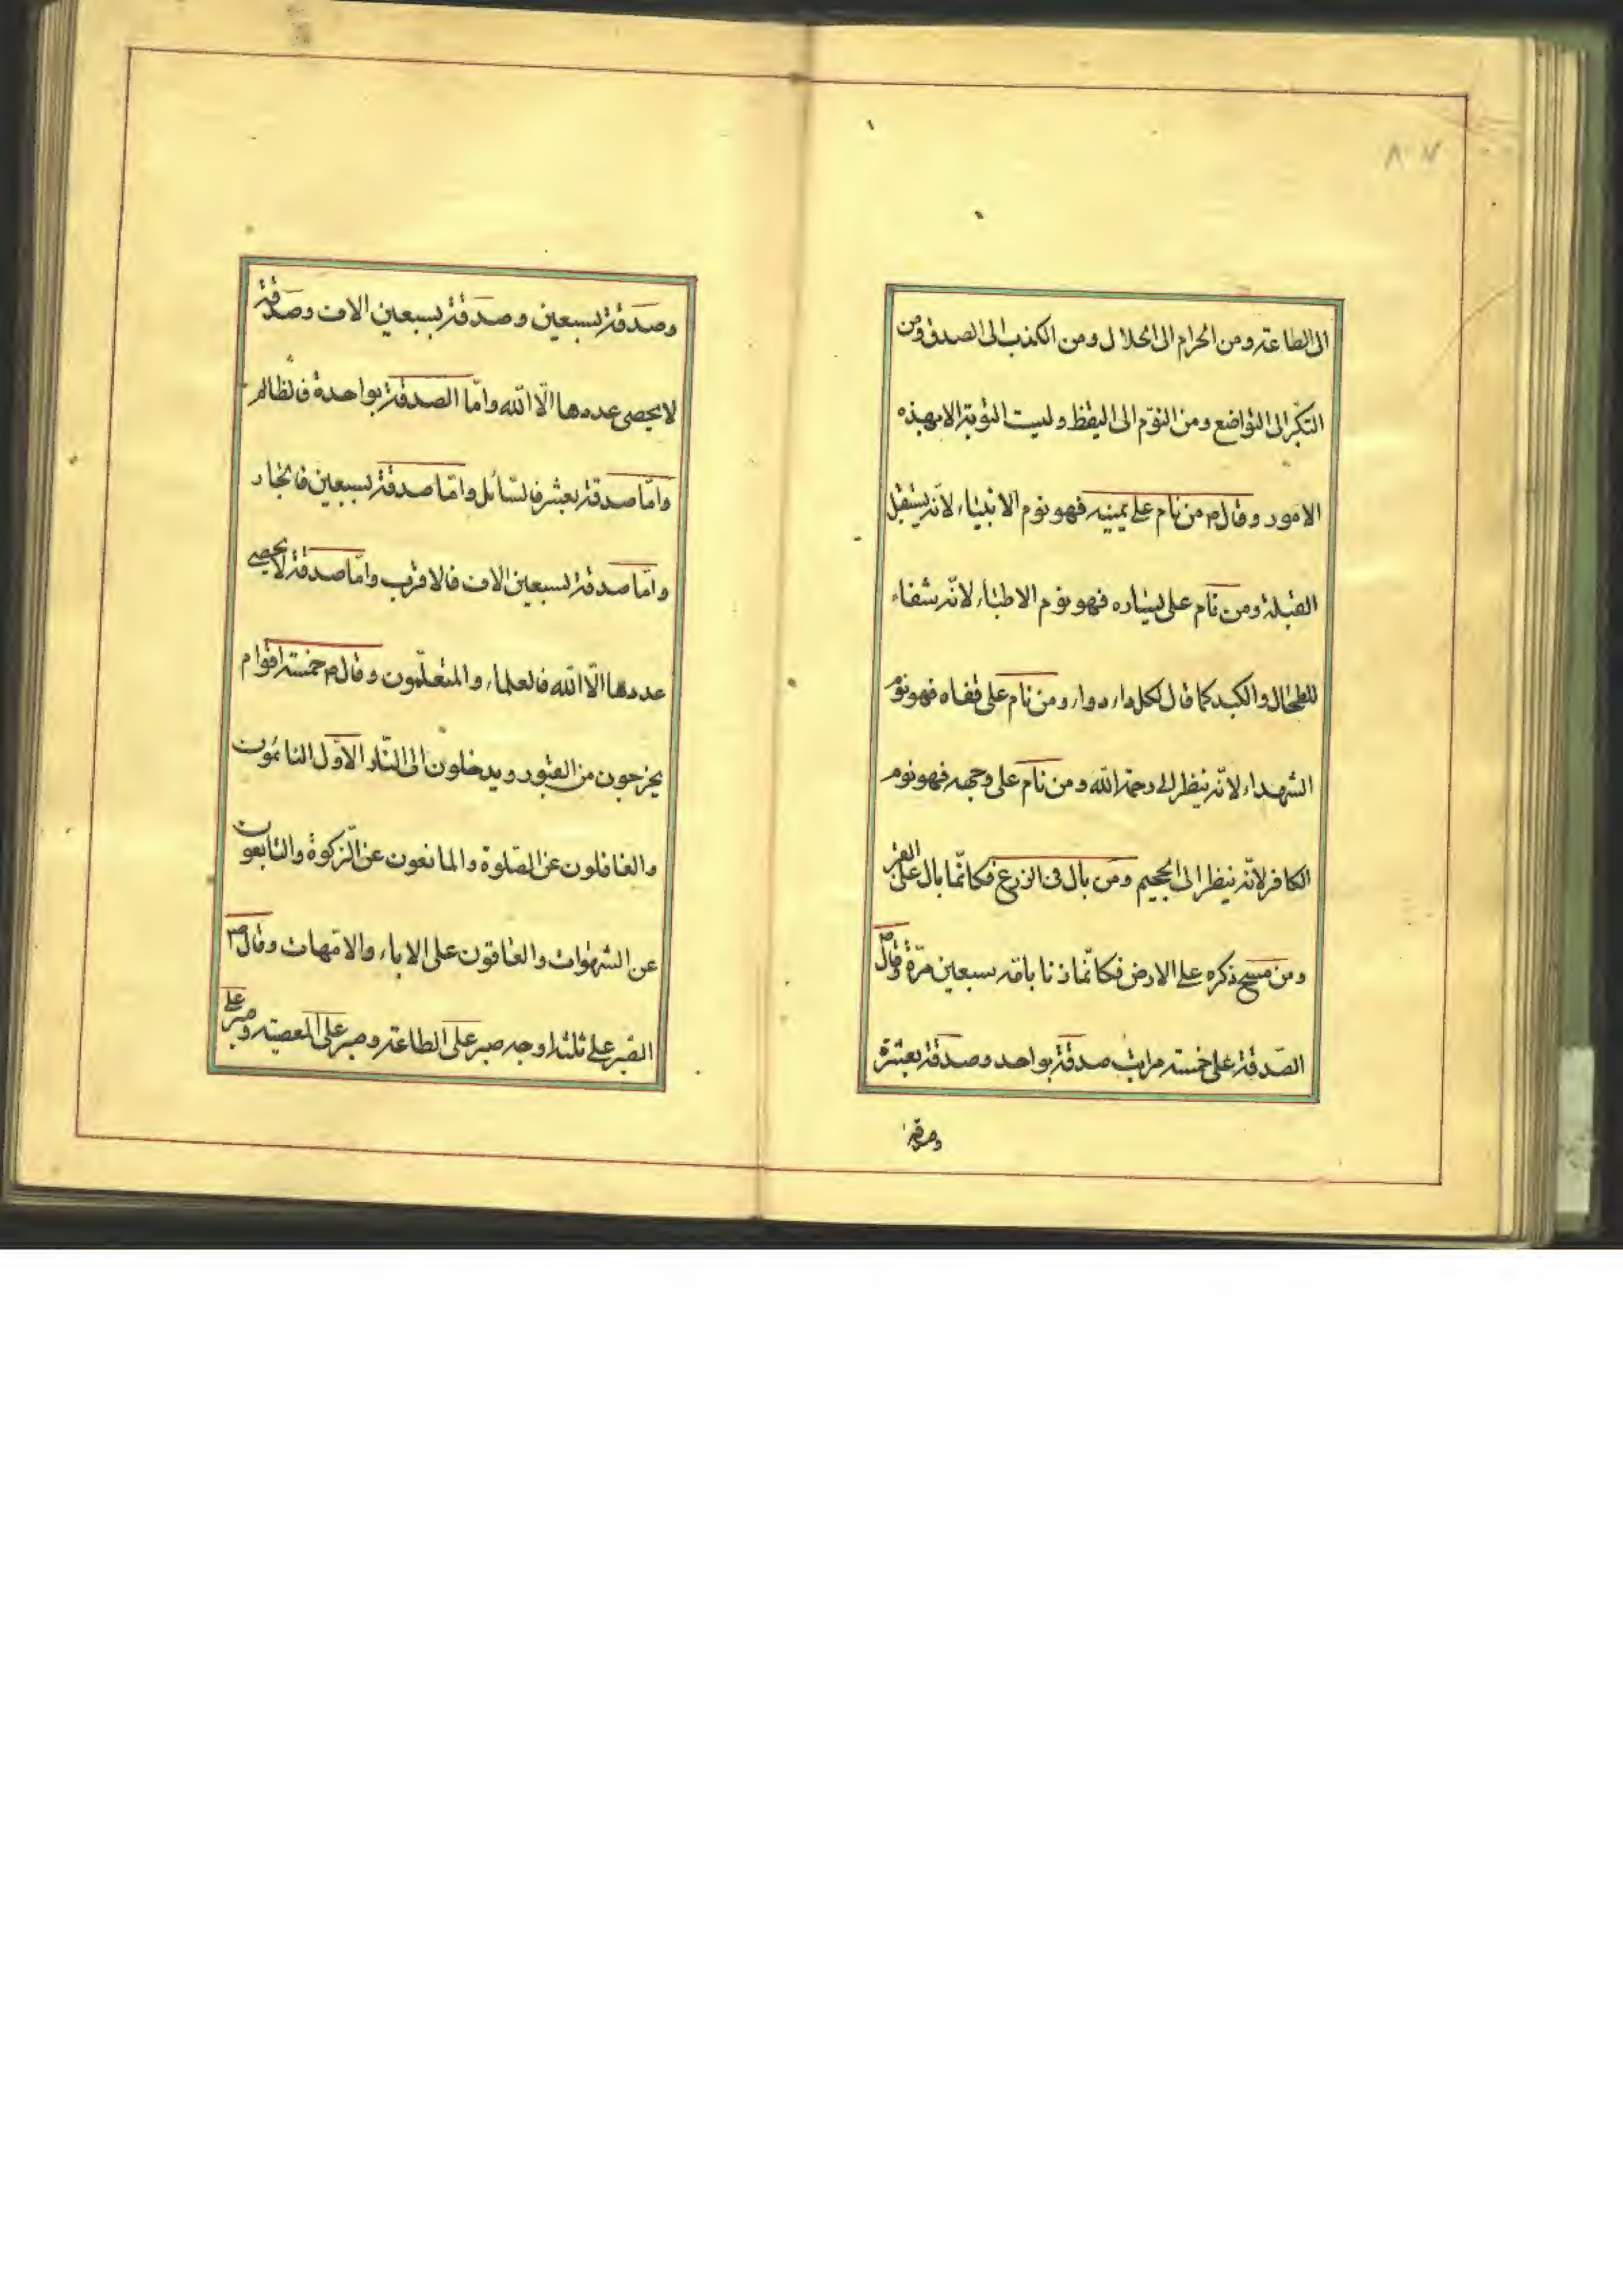 ٨٧
الى الطاعة ومن الحرام الى الحلال ومن الكذب الى الصدق ومن
التكبّر الى التواضع ومن النوّم الى اليقظ وليست التوبة الا بهذه
الامور وقال ص من نام على يمينه فهو نوم الانبياء لانّه يستقبل
القبلة ومن نام على يساره فهو نوم الاطباء لانّه شفاء
للطحال والكبد كما قال لكل داء دواء ومن نام على قفاه فهو نوم
الشهداء لانّه ينظر الى رحمة الله ومن نام على وجهه فهو نوم
الكافر لانّه ينظر الى الجحيم ومن بال فى الزرع فكانّما بال على القبر
ومن مسح ذكره على الارض فكانّما زنا بامّه سبعين مرّة وقال ص
الصّدقة على خمسة مراتب صدقة بواحد وصدقة بعشرة
وصدقة
وصدقة بسبعين وصدقة بسبعين الاف وصدقة
لا يحصى عددها الّا الله وامّا الصدقة بواحدة فالظالم
وامّا صدقة بعشر فالسّائل وامّا صدقة بسبعين فالجار
وامّا صدقة بسبعين الاف فالاقرب وامّا صدقة لا يحصى
عددها الّا الله فالعلماء والمتعلّمون وقال ص خمسة اقوام
يخرجون من القبور ويدخلون الى النّار الاوّل النائمون
والغافلون عن الصّلوة والمانعون عن الزّكوة والتابعون
عن الشهوات والعاقون على الاباء والامّهات وقال ص
الصّبر على ثلثة اوجه صبر على الطاعة وصبر على المعصية وصبر على